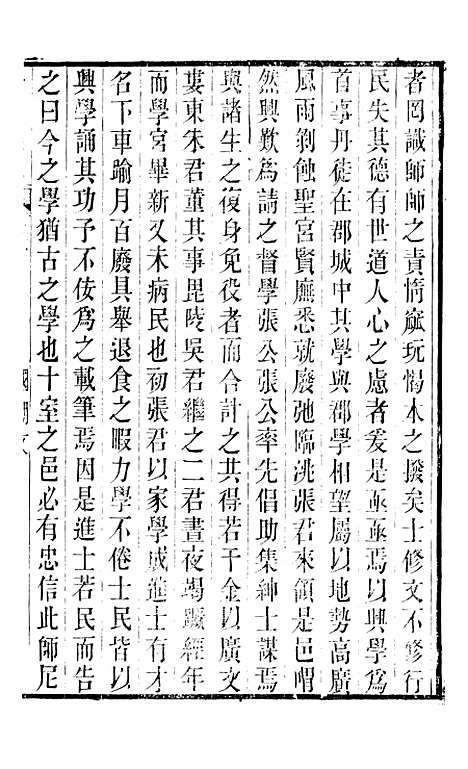 者罔識師師之責惰窳玩愒木之撥矣士修文不修行
民失其德有世道人心之慮者爰是亟亟焉以興學爲
首事丹徒在郡城中其學與郡學相望屬以地勢高廣
風雨剝蝕聖宮賢廡悉就廢弛臨洮張君來領是邑喟
然興歎爲請之督學張公張公率先倡助集紳士謀焉
與諸生之復身免役者而合計之共得若干金以廣文
婁東朱君董其事毘陵吳君繼之二君晝夜竭蹶經年
而學宮畢新又未病民也初張君以家學成進士有才
名下車踰月百廢具舉退食之暇力學不倦士民皆以
興學誦其功予不佞爲之載筆焉因是進士若民而告
之曰今之學猶古之學也十室之邑必有忠信此師尼